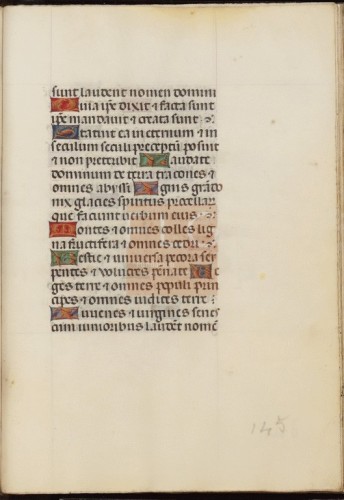 sunt laudent nomen domini
Quia ip̄e dixit ⁊ facta sunt
ip̄e mandauit ⁊ creata sunt
Statuit ea in eternum ⁊ in
seculum seculi preceptū posuit
⁊ non preteribit Laudate
dominum de terra dracones ⁊
omnes abyssi Ignis grādo
nix glacies spiritus procellar̄
que faciunt uerbum eius
Montes ⁊ omnes colles lig
na fructifera ⁊ omnes cedri
Bestie ⁊ uniuersa pecora ser
pentes ⁊ volucres pēnate Re
ges terre ⁊ omnes populi prin
cipes ⁊ omnes iudices terre
Iuuenes ⁊ uirgines senes
cum iunioribus laudēt nomē
145